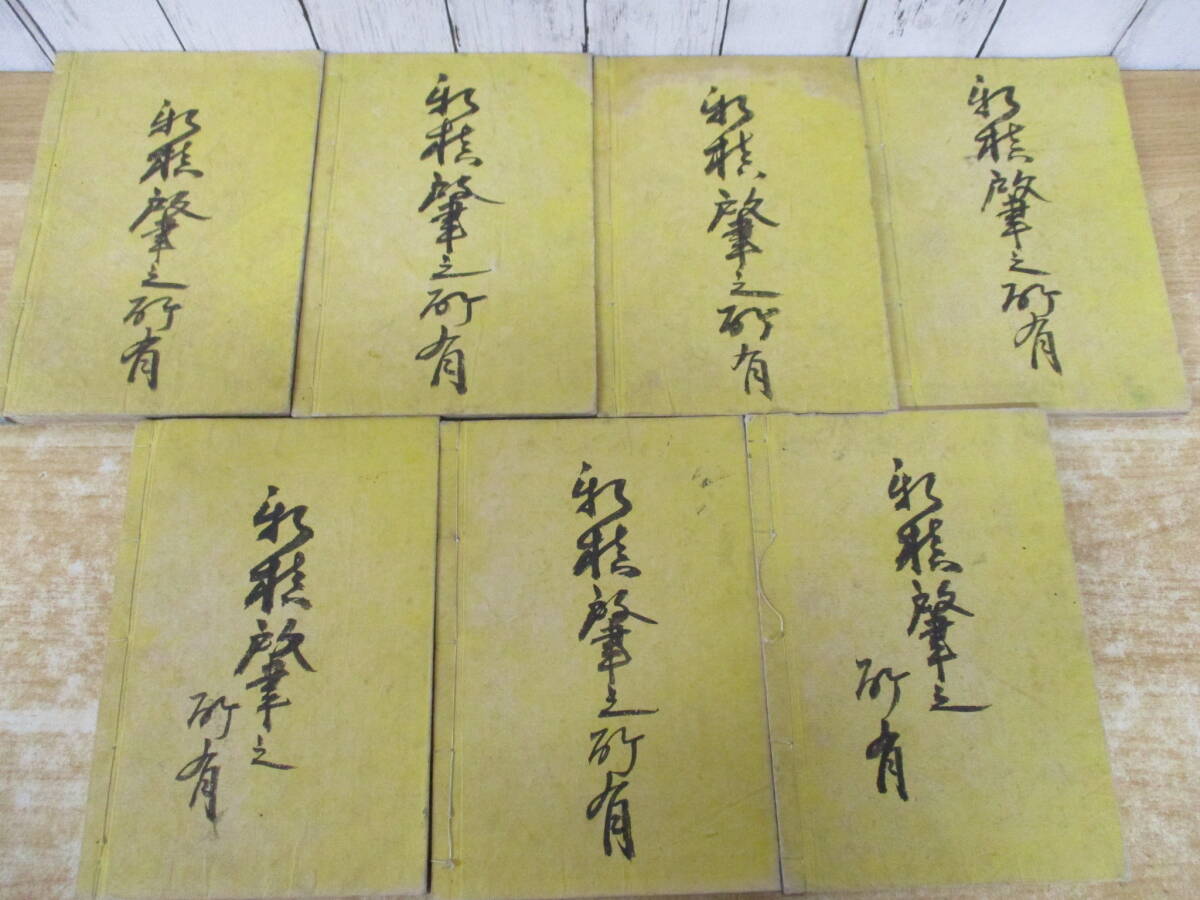 新槙肇之所有
新槙肇之所有
新槙肇之所有
新槙肇之所有
新槙肇之
所有
新槙肇之所有
新槙肇之
所有